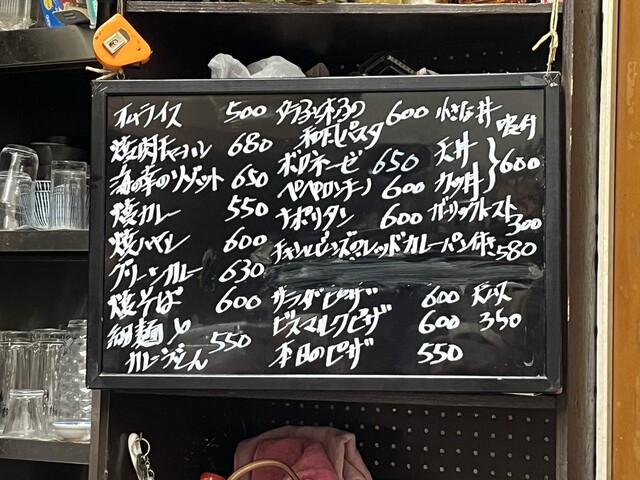 オムライス 500
焼肉チャーハン 680
海の幸のリゾット 650
焼カレー 550
焼ハヤシ 600
グリーンカレー 630
焼そば 600
細麺
カレーうどん 550
の 600
和風パスタ
ボロネーゼ 650
ペペロンチーノ 600
ナポリタン 600
チキンとビーンズのレッドカレーパン付き 580
サラダピザ 600
ビスマルクピザ 600
本日のピザ 550
小さな丼
天丼
カツ丼 600
ガーリックトースト
300
350